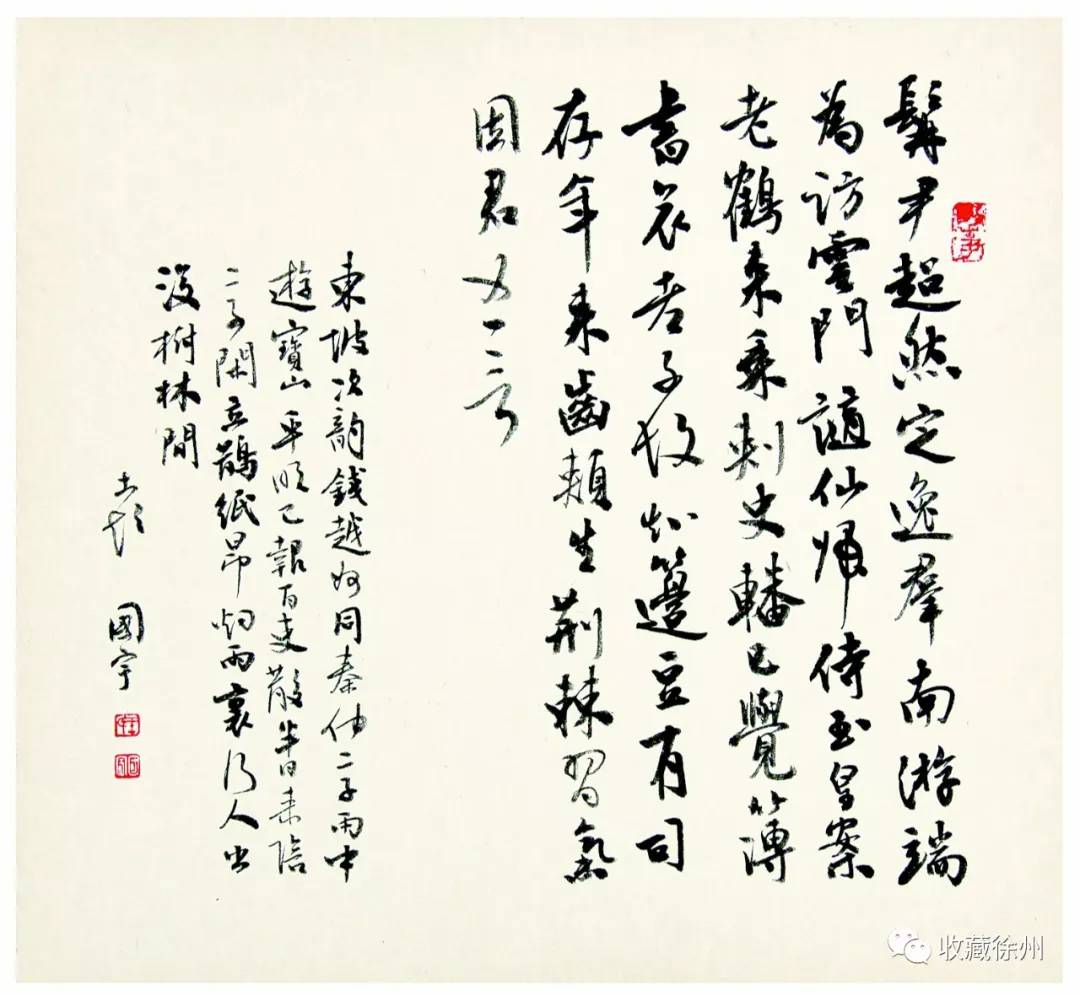 髯尹超然定逸羣南游端
為訪雲門謫仙歸侍玉皇案
老鶴來乘刺史轓已覺簿
書哀老子故知籩豆有司
存年來齒頰生荆棘習氣
因君又一言
東坡次韵錢越州同秦仲二子雨中
遊寶山平明已報百吏散半日來陪
二子閑立鵲紙昂烟雨裏行人出
沒樹林間
國宇
收藏徐州